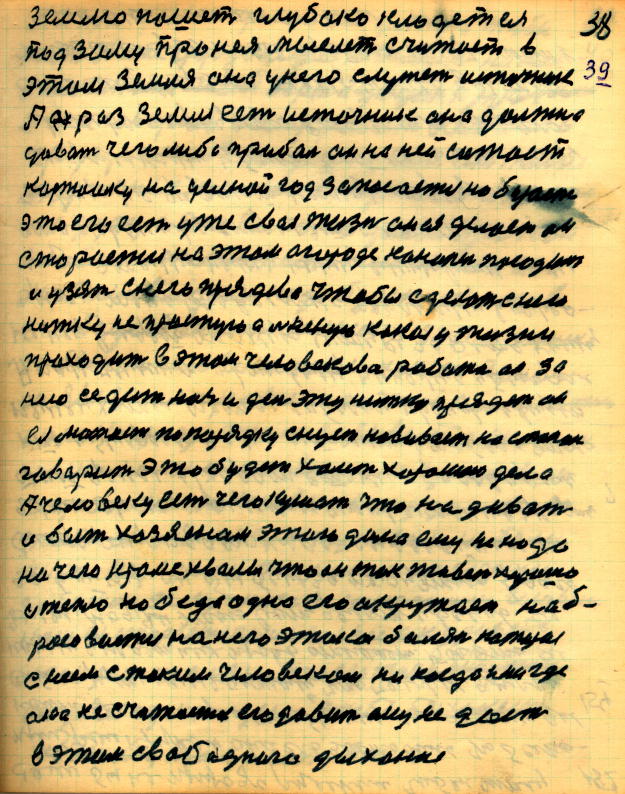 землю пашет глубоко кладется 38
под зиму про нея мыслет считает в
этом земля она у него служет источник 39
А раз земля ест источник она должна
дават чего либо прибал он на ней сажает
картошку на целной год запасается но бураст
это его ест уже своя жизн оноя делает он
старается на этом огороде канапи посадит
и узят с него прядева чтобы сделат с него
нитку не простую а линную какая у жизни
проходит в этом человекова работа он за
нею седит ноч и ден эту нитку прядет он
ея мотает по порядку снует навивает на станок
говарит это будет халст хорошаю дело
А человеку ест чего кушат что надиват
и быт хозяенам этого дома ему не надо
на чего кроме хвали что он так живет хорошо
и тепло но беда одно его акружает наб-
расовается на него этака болян которая
с ним с таким человекам ни когда и нигде
она не считается его давит ему не дает
в этом свабадного дыхание